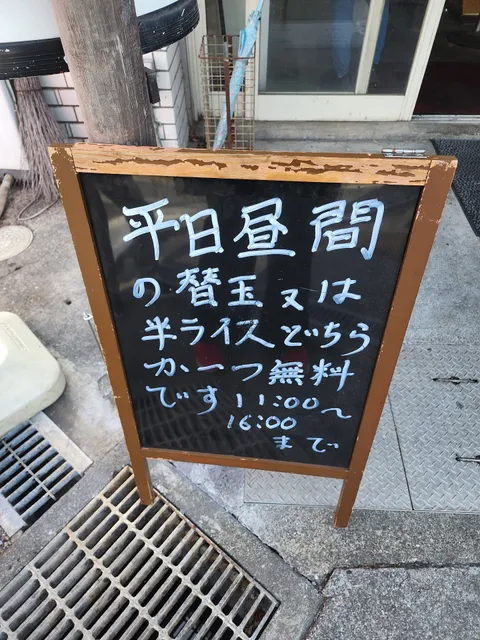 平日昼間
の替玉又は
半ライスどちら
か一つ無料
です11:00〜
16:00
まで